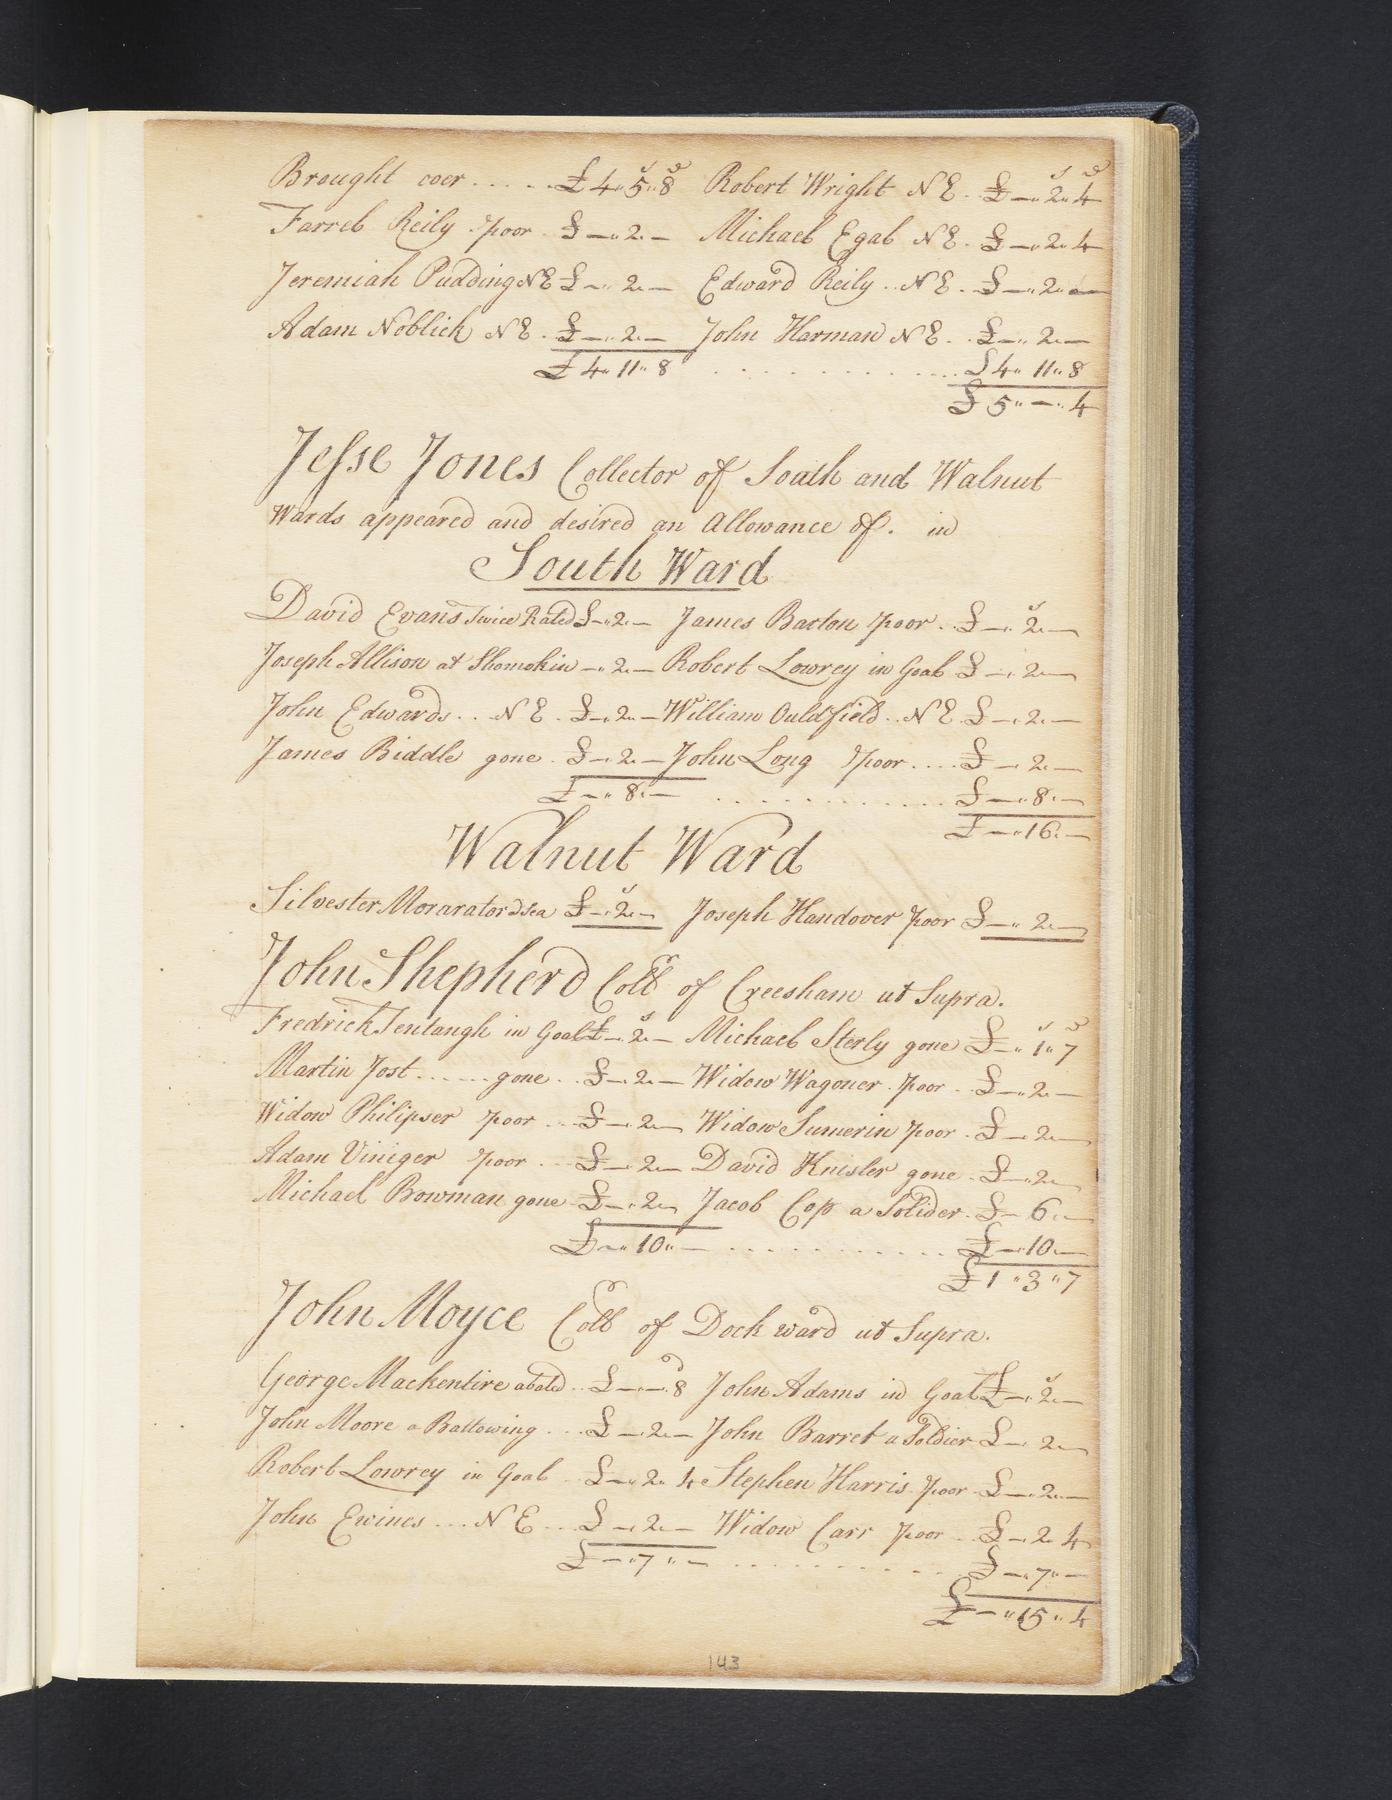 Brought over ..... £ 4 " 5 " 8 Robert Wright N E .. £ — " 2 " 4
Farrel Reily . poor . £ — " 2 " — Michael Egal N E . £ — " 2 " 4
Jeremiah Pudding N E £ — " 2 " — Edward Reily .. N E . £ — " 2 " —
Adam Noblick N E . £ — " 2 " — John Harman N E . . £ — " 2 " —
£ 4 " 11 " 8 ............ £ 4 " 11 " 8
£ 5 " — " 4
Jesse Jones Collector of South and Walnut
Wards appeared and desired an Allowance of . in
South Ward
David Evans Twice Rated £ — " 2 " — James Barton poor .. £ — " 2 " —
Joseph Allison at Shomokin — " 2 " — Robert Lowrey in Goal £ — " 2 " —
John Edwards .. N E . £ — " 2 " — William Ouldfield .. N E £ — " 2 " —
James Biddle gone . £ — " 2 " — John Long poor .... £ — " 2 " —
£ — " 8 " — ............ £ — " 8 " —
£ — " 16 " —
Walnut Ward
Silvester Morarator @ Sea £ — " 2 " — Joseph Handover poor £ — " 2 " —
John Shepherd Collr of Creesham ut Supra.
Fredrick Tentangh in Goal £ — " 2 " — Michael Sterly gone £ — " 1 " 7
Martin Jost ...... gone .. £ — " 2 " — Widow Wagoner . poor . £ — " 2 " —
Widow Philipser poor ... £ — " 2 " — Widow Sumerin poor . £ — " 2 " —
Adam Viniger poor ... £ — " 2 " — David Knisler gone . £ — " 2 " —
Michael Bowman gone £ — " 2 " — Jacob Cop a Solider . £ — 6 " —
£ — " 10 " — ............ £ — " 10 " —
£ 1 " 3 " 7
John Moyce Collr of Dock ward ut Supra.
George Mackentire abated .. £ — " — " 8 John Adams in Goal £ — " 2 " —
John Moore a Battowing ... £ — " 2 " — John Barret a Soldier £ — " 2 " —
Robert Lowrey in Goal .. £ — " 2 " 4 Stephen Harris poor £ — " 2 " —
John Ewines ... N E ... £ — " 2 " — Widow Carr poor .. £ — " 2 " 4
£ — " 7 " — ............ £ — " 7 " —
£ — " 15 " 4
143